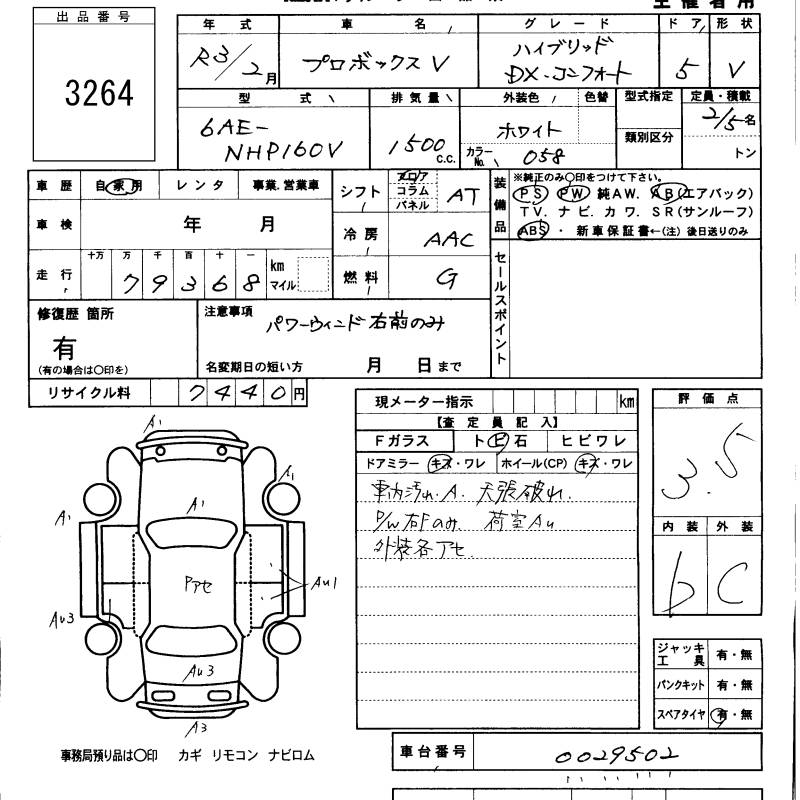 主催者用
出品番号
3264
年式 車名 グレード ドア 形状
R3/2月 プロボックスV ハイブリッド DX-コンフォート 5 V
型式 排気量 外装色 色替 型式指定 定員・積載
6AE-NHP160V 1500 C.C. ホワイト カラーNo. 058 類別区分 2/5名 トン
車歴 自家用 レンタ 事業.営業車
シフト フロア コラム パネル AT
装備品 ※純正のみ〇印をつけて下さい。
PS PW 純AW. AB(エアバック)
TV. ナビ. カワ. SR(サンルーフ)
ABS ・ 新車保証書←(注) 後日送りのみ
車検 年 月
冷房 AAC
走行 十万 万 千 百 十 一
79368 km マイル
燃料 G
セールスポイント
修復歴 箇所
有
(有の場合は〇印を)
注意事項
パワーウィンド右前のみ
名変期日の短い方 月 日まで
リサイクル料 7440円
現メーター指示 km
【査定員記入】
Fガラス トビ石 ヒビワレ
ドアミラー キズ・ワレ ホイール(CP) キズ・ワレ
車内汚れ.A. 天張破れ.
P/W右Fのみ 荷室Au
外装各アセ
評価点
3.5
内装 外装
b C
A1
A1
A1
A1
Pアセ
Au1
Au3
Au3
A3
ジャッキ工具 有・無
パンクキット 有・無
スペアタイヤ 有・無
事務局預り品は〇印 カギ リモコン ナビロム
車台番号 0029502